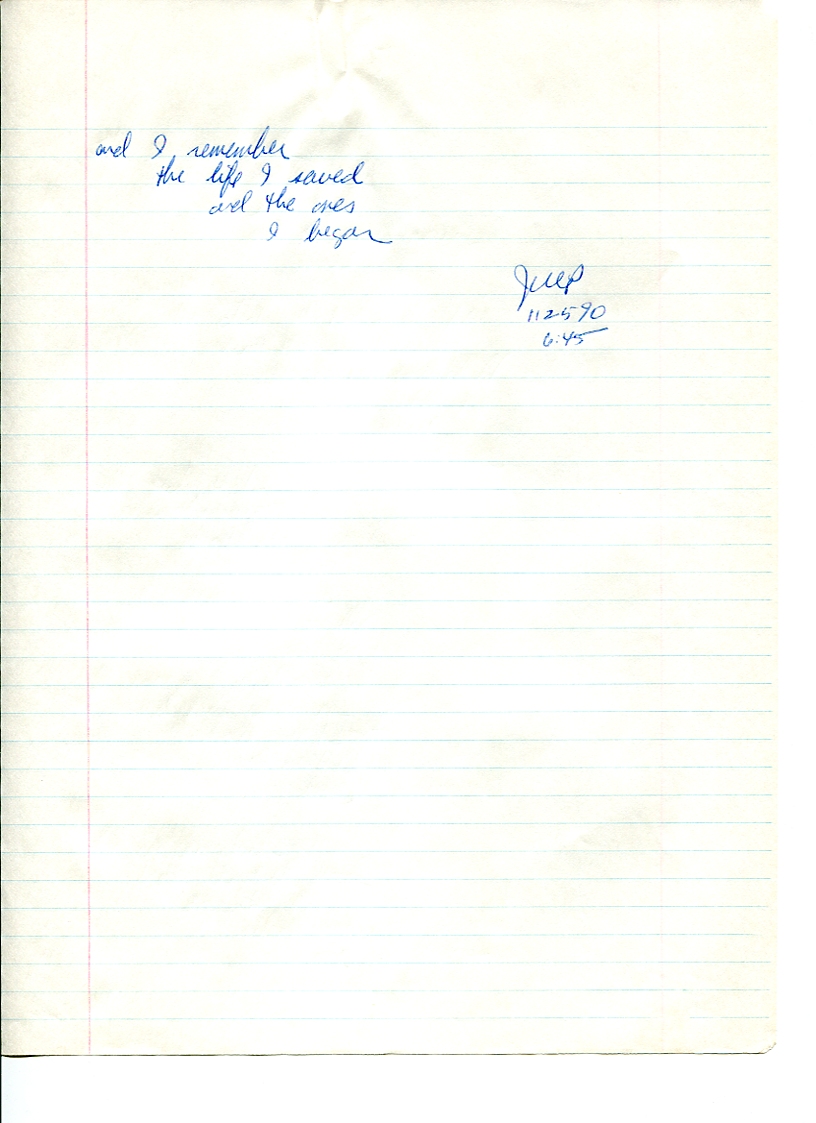 and I remember
the life I saved
and the ones
I began
JMP
112590
6:45